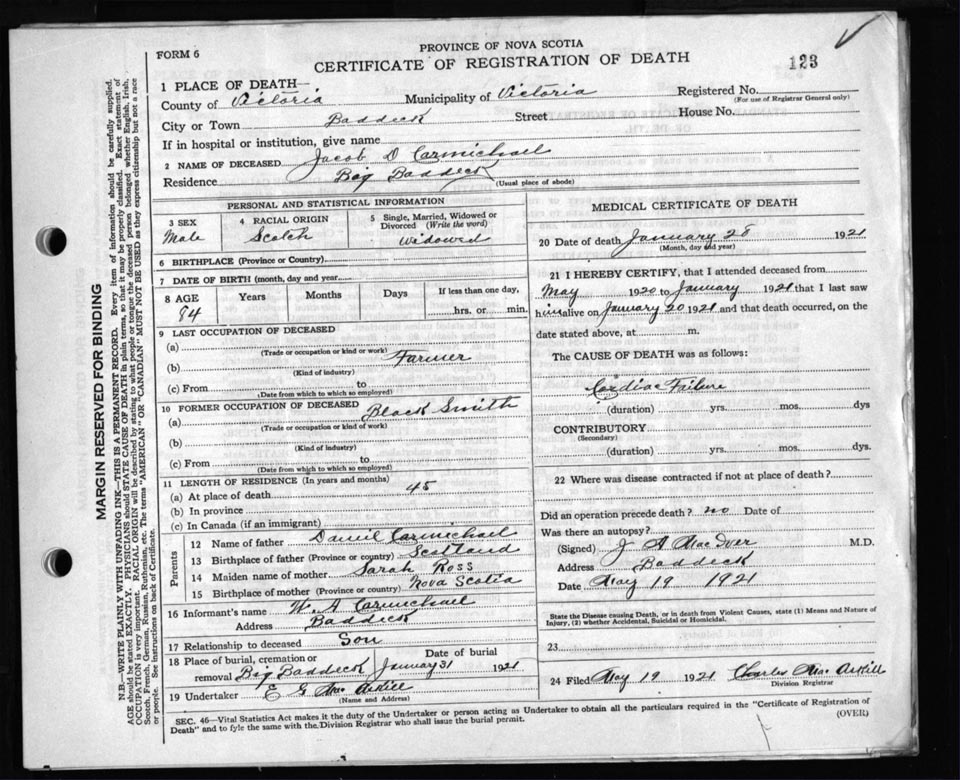 FORM 6
PROVINCE OF NOVA SCOTIA
CERTIFICATE OF REGISTRATION OF DEATH
123
1 PLACE OF DEATH
County of Victoria Municipality of Victoria Registered No.
(For use of Registrar General only)
City or Town Baddeck Street House No.
If in hospital or institution, give name
2 NAME OF DECEASED Jacob D Carmichael
Residence Big Baddeck (Usual place of abode)
PERSONAL AND STATISTICAL INFORMATION
3 SEX Male
4 RACIAL ORIGIN Scotch
5 Single, Married, Widowed or Divorced (Write the word) Widowed
6 BIRTHPLACE (Province or Country)
7 DATE OF BIRTH (month, day and year)
8 AGE Years Months Days If less than one day,
84 hrs. or min.
9 LAST OCCUPATION OF DECEASED
(a) Farmer
(Trade or occupation or kind or work)
(b)
(Kind of industry)
(c) From to
(Date from which to which so employed)
10 FORMER OCCUPATION OF DECEASED Black Smith
(a)
(Trade or occupation or kind of work)
(b)
(Kind of industry)
(c) From to
(Date from which to which so employed)
11 LENGTH OF RESIDENCE (In years and months)
(a) At place of death 45
(b) In province
(c) In Canada (if an immigrant)
Parents
12 Name of father Daniel Carmichael
13 Birthplace of father (Province or country) Scotland
14 Maiden name of mother Sarah Ross
15 Birthplace of mother (Province or country) Nova Scotia
16 Informant's name W. A Carmichael
Address Baddeck
17 Relationship to deceased Son
18 Place of burial, cremation or removal Big Baddeck Date of burial January 31 1921
19 Undertaker E G Mac Askill
(Name and Address)
MEDICAL CERTIFICATE OF DEATH
20 Date of death January 28 1921
(Month, day and year)
21 I HEREBY CERTIFY, that I attended deceased from
May 1920 to January 1921 that I last saw
him alive on January 20 1921 and that death occurred, on the
date stated above, at m.
The CAUSE OF DEATH was as follows:
Cardiac Failure
(duration) yrs. mos. dys
CONTRIBUTORY
(Secondary)
(duration) yrs. mos. dys.
22 Where was disease contracted if not at place of death?
Did an operation precede death? no Date of
Was there an autopsy?
(Signed) J A MacIver M.D.
Address Baddeck
Date May 19 1921
State the Disease causing Death, or in death from Violent Causes, state (1) Means and Nature of
Injury, (2) whether Accidental, Suicidal or Homicidal.
23
24 Filed May 19 1921 Charles Mac Askill
Division Registrar
SEC. 46—Vital Statistics Act makes it the duty of the Undertaker or person acting as Undertaker to obtain all the particulars required in the "Certificate of Registration of
Death" and to fyle the same with the Division Registrar who shall issue the burial permit.
(OVER)
MARGIN RESERVED FOR BINDING
N.B.—WRITE PLAINLY WITH UNFADING INK—THIS IS A PERMANENT RECORD. Every item of information should be carefully supplied.
AGE should be stated EXACTLY. PHYSICIANS should STATE CAUSE OF DEATH in plain terms, so that it may be properly classified. Exact statement of
OCCUPATION is very important. RACIAL ORIGIN will be described by stating to what people or tongue the deceased person belonged whether English, Irish,
Scotch, French, German, Russian, Ruthenian, etc. The terms "AMERICAN" OR "CANADIAN" MUST NOT BE USED as they express citizenship but not a race
or people. See instructions on back of Certificate.